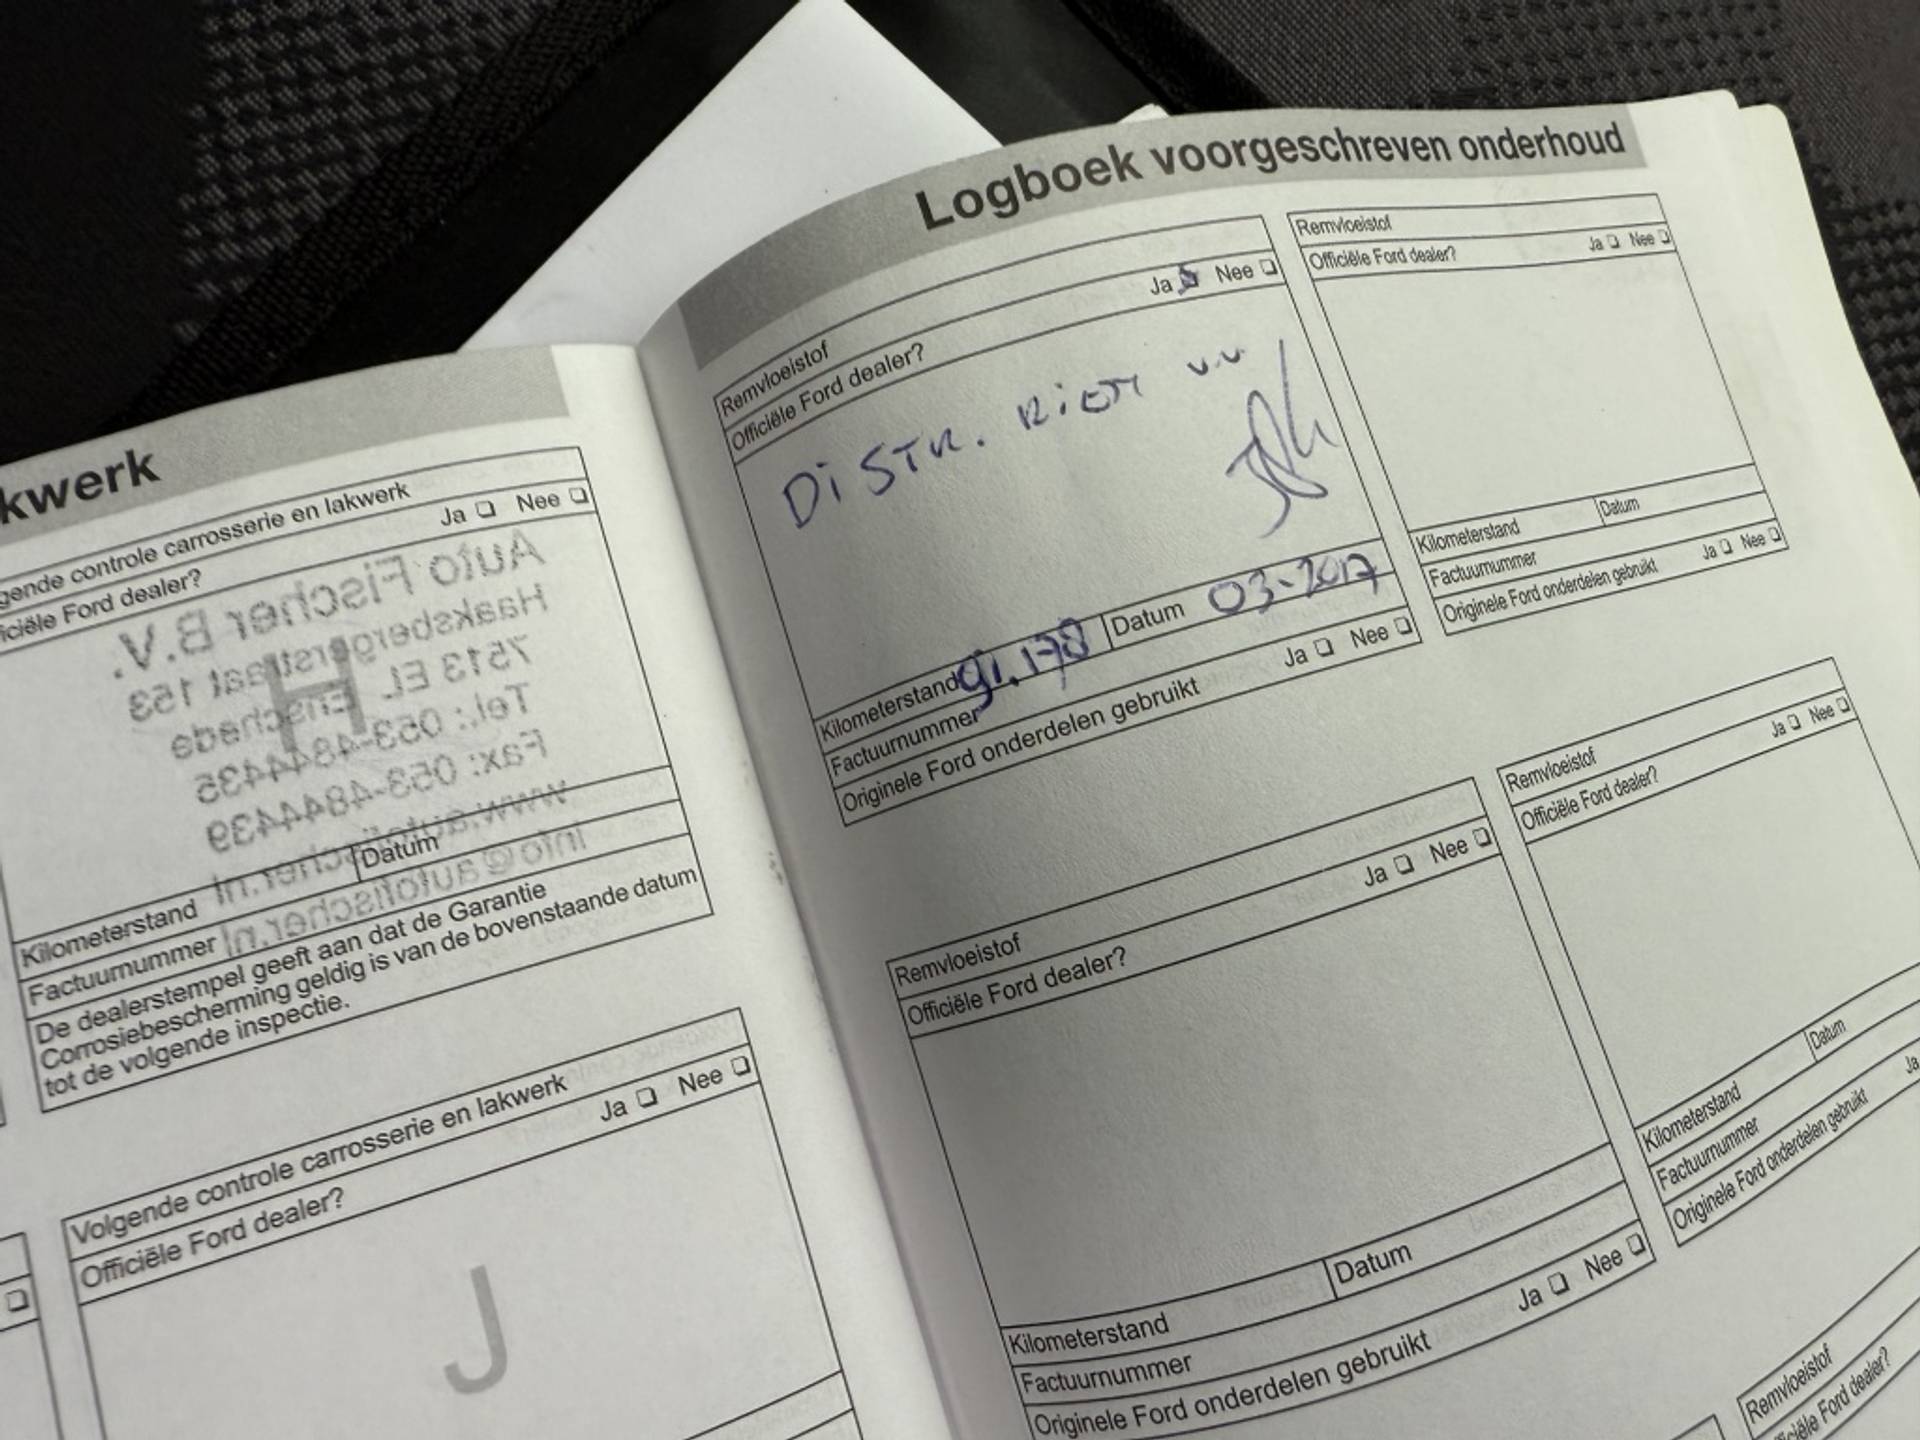 kwerk
gende controle carrosserie en lakwerk
iciële Ford dealer?
Ja ❏ Nee ❏
Auto Fischer B.V.
Haaksbergerstraat 153
7513 EL Enschede
Tel.: 053-4844435
Fax: 053-4844439
www.autofischer.nl
info@autofischer.nl
H
Kilometerstand
Datum
Factuurnummer
De dealerstempel geeft aan dat de Garantie
Corrosiebescherming geldig is van de bovenstaande datum
tot de volgende inspectie.
Volgende controle carrosserie en lakwerk
Officiële Ford dealer?
Ja ❏ Nee ❏
J
Logboek voorgeschreven onderhoud
Remvloeistof
Officiële Ford dealer?
Ja Nee ❏
DiSTR. RiEM v.v
Kilometerstand 91.178
Datum 03-2017
Factuurnummer
Originele Ford onderdelen gebruikt
Ja ❏ Nee ❏
Remvloeistof
Officiële Ford dealer?
Ja ❏ Nee ❏
Kilometerstand
Datum
Factuurnummer
Originele Ford onderdelen gebruikt
Ja ❏ Nee ❏
Remvloeistof
Officiële Ford dealer?
Ja ❏ Nee ❏
Kilometerstand
Datum
Factuurnummer
Originele Ford onderdelen gebruikt
Ja ❏ Nee ❏
Remvloeistof
Officiële Ford dealer?
Ja ❏ Nee ❏
Kilometerstand
Datum
Factuurnummer
Originele Ford onderdelen gebruikt
Ja
Remvloeistof
ficiële Ford dealer?